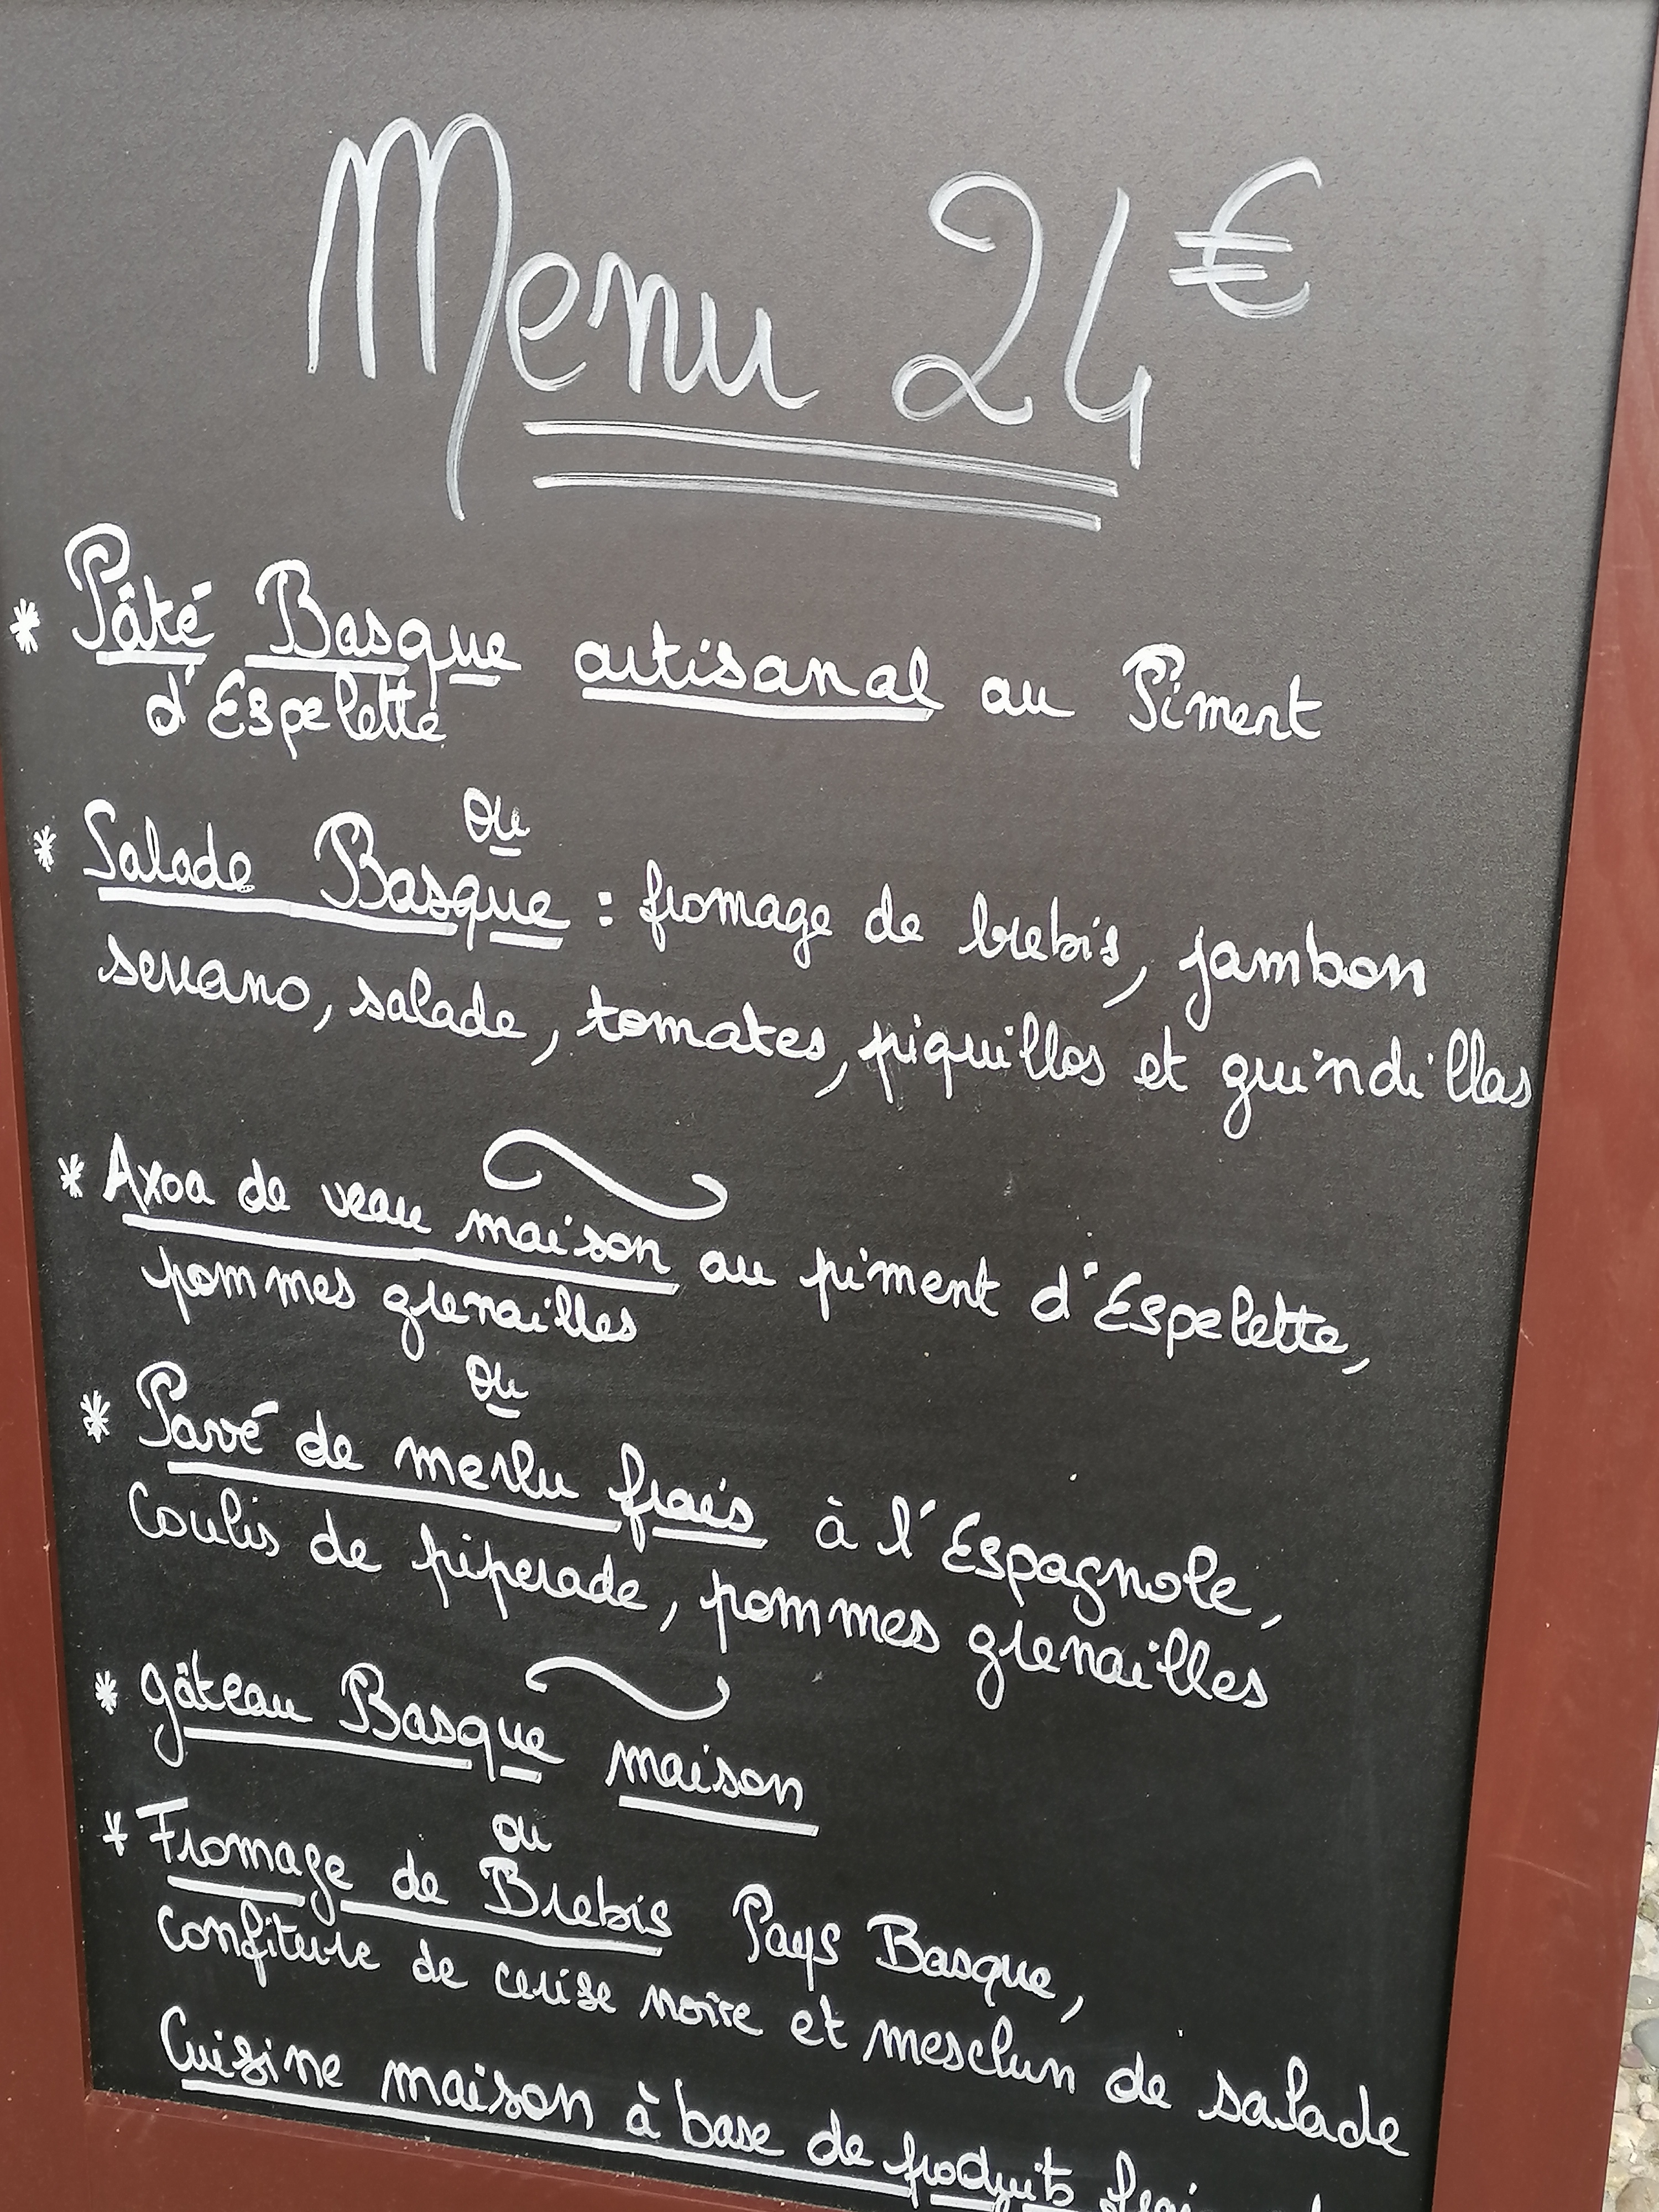 Menu 24€
* Pâté Basque artisanal au Piment
d'Espelette
ou
* Salade Basque : fromage de brebis, jambon
serrano, salade, tomates, piquillos et guindillas
* Axoa de veau maison au piment d'Espelette,
pommes grenailles
ou
* Pavé de merlu frais à l'Espagnole,
Coulis de piperade, pommes grenailles
* gâteau Basque maison
ou
* Fromage de Brebis Pays Basque,
confiture de cerise noire et mesclun de salade
Cuisine maison à base de produits